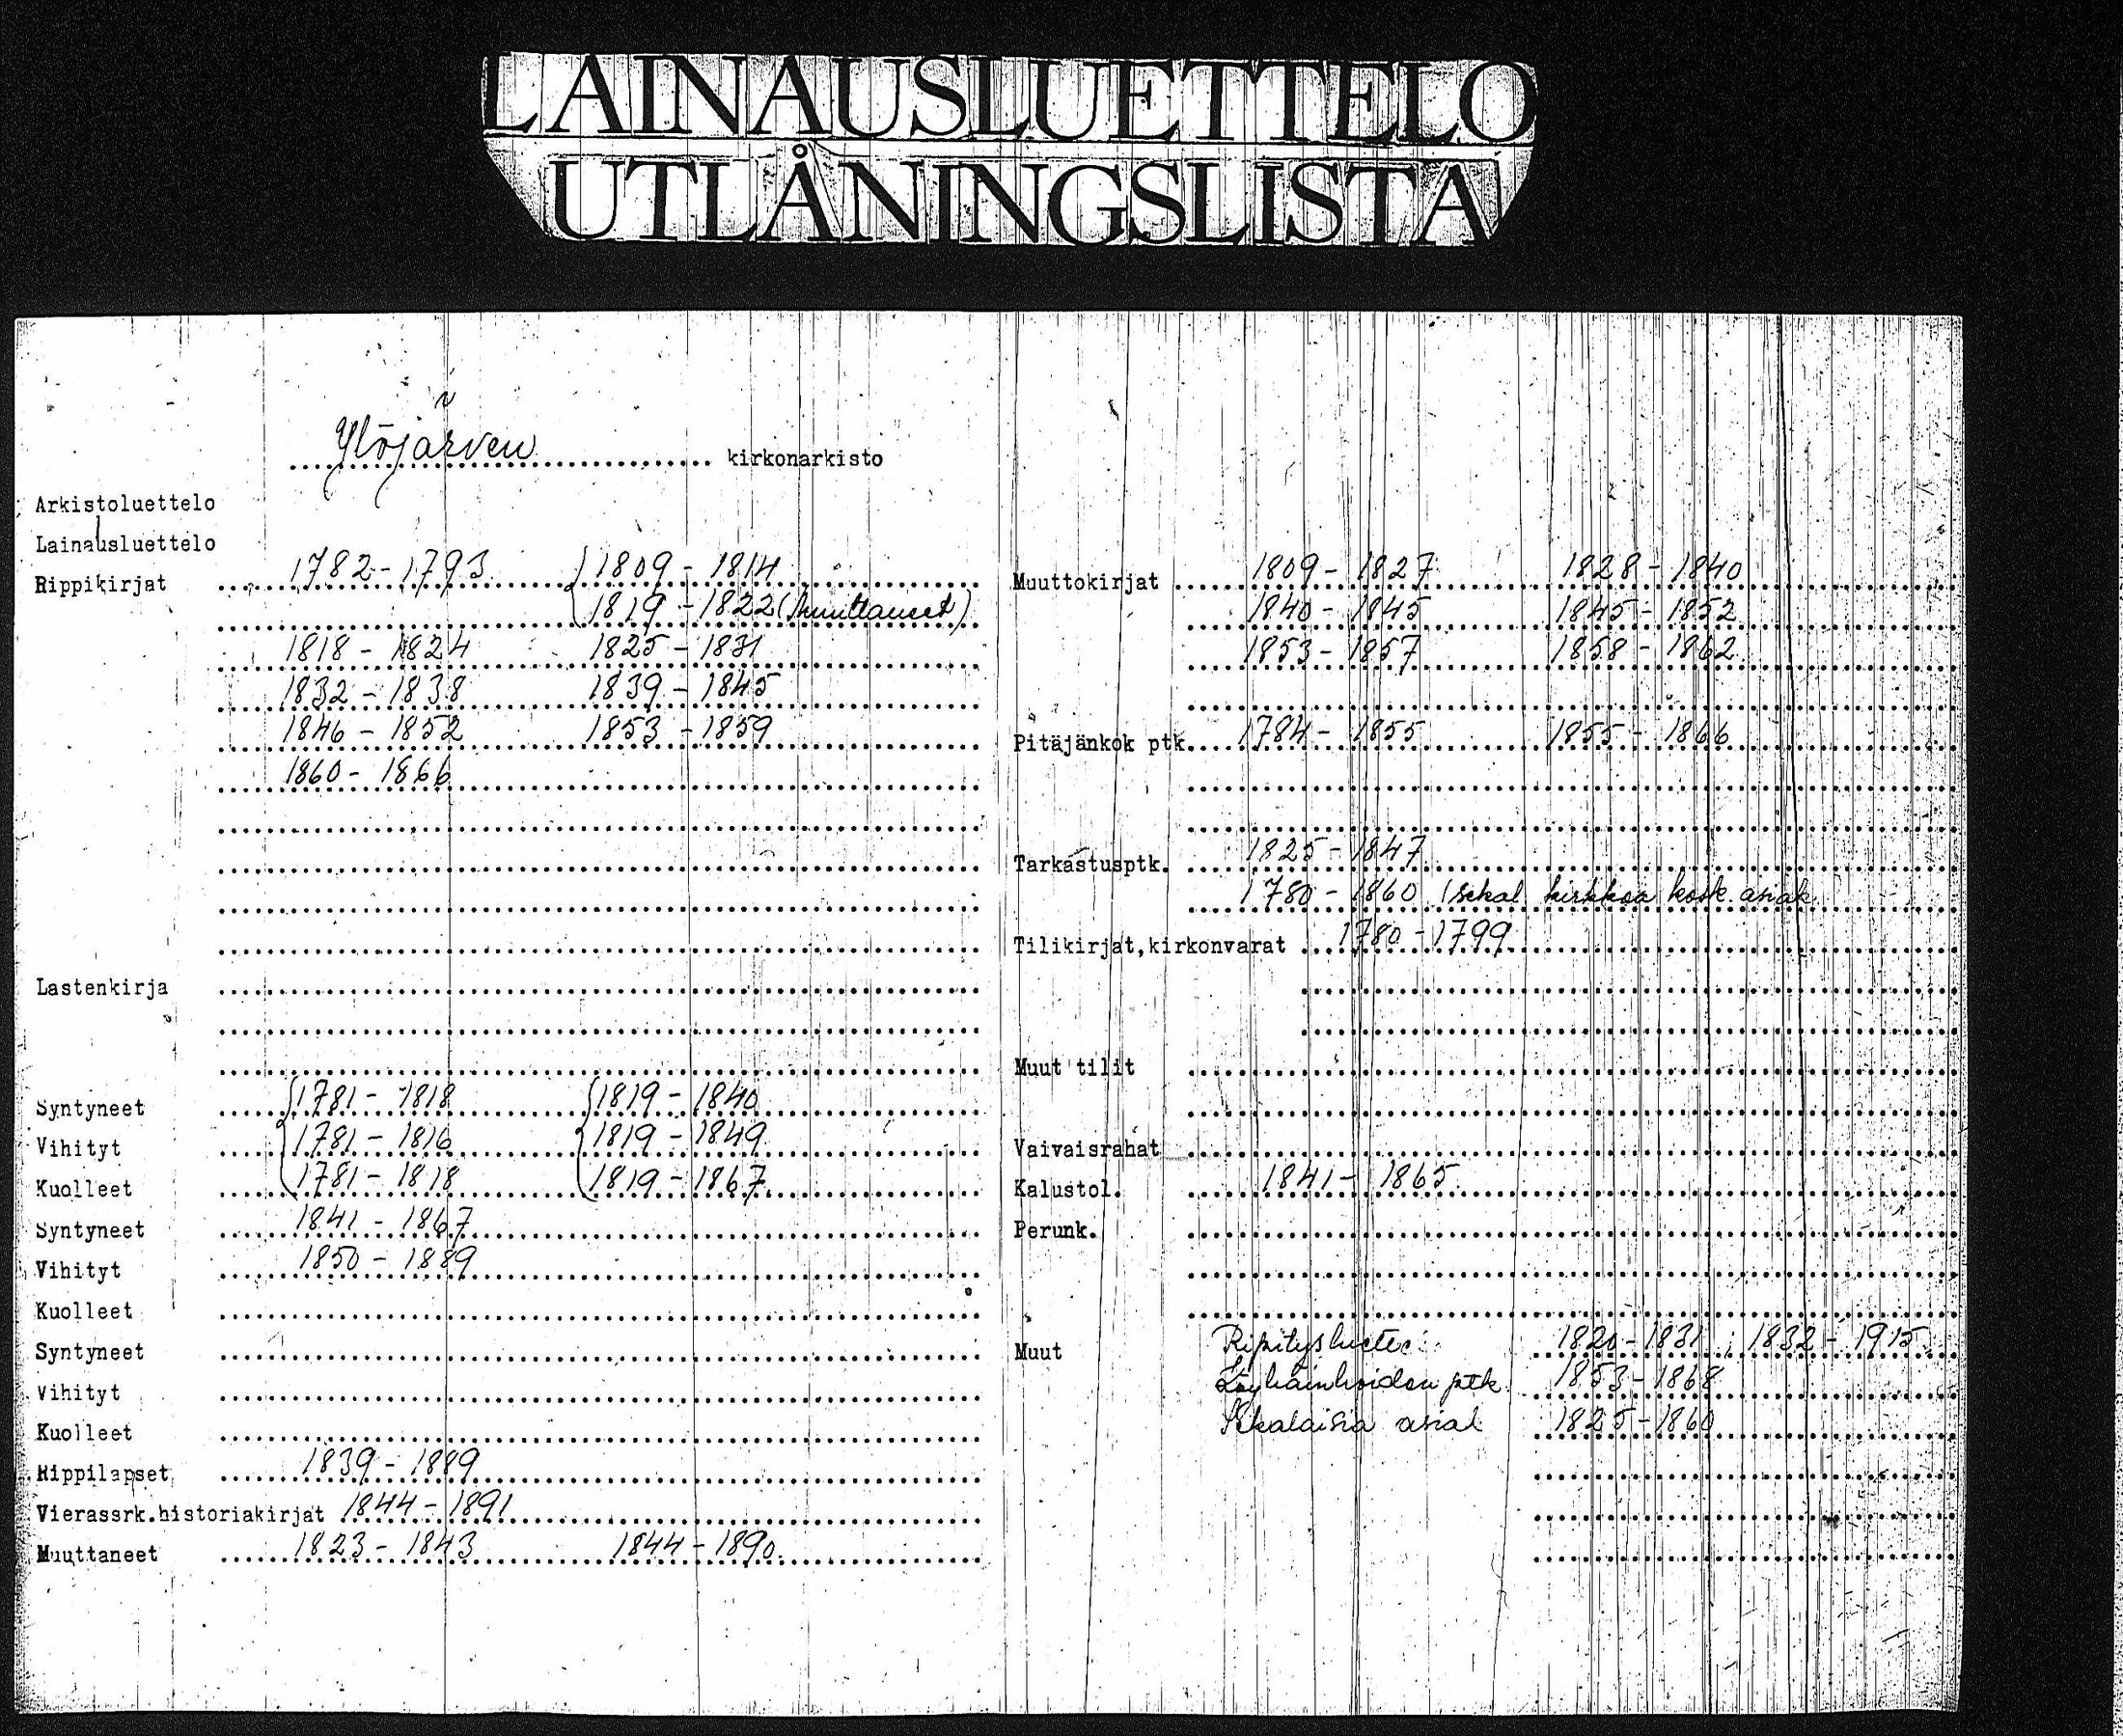 LAINAUSLUETTELO
UTLÅNINGSLISTA
Ylöjärven kirkonarkisto
Arkistoluettelo
Lainausluettelo
Rippikirjat 1782-1793 1809-1814
1819-1822 (muuttaneet)
1818-1824 1825-1831
1832-1838 1839-1845
1846-1852 1853-1859
1860-1866
Lastenkirja
Syntyneet 1781-1818 1819-1840
Vihityt 1781-1816 1819-1849
Kuolleet 1781-1818 1819-1867
Syntyneet 1841-1867
Vihityt 1850-1889
Kuolleet
Syntyneet
Vihityt
Kuolleet
Rippilapset 1839-1889
Vierassrk.historiakirjat 1844-1891
Muuttaneet 1823-1843 1844-1890
Muuttokirjat 1809-1827 1828-1840
1840-1845 1845-1852
1853-1857 1858-1862
Pitäjänkok ptk. 1784-1855 1855-1866
Tarkastusptk. 1825-1847
1780-1860 (sekal kirkkoa kosk. asiak.
Tilikirjat,kirkonvarat 1780-1799
Muut tilit
Vaivaisrahat
Kalustol. 1841-1865
Perunk.
Muut Ripitysluettel. 1820-1831; 1832-1915
Köyhäinhoidon ptk. 1853-1868
Sekalaisia asiak 1825-1860